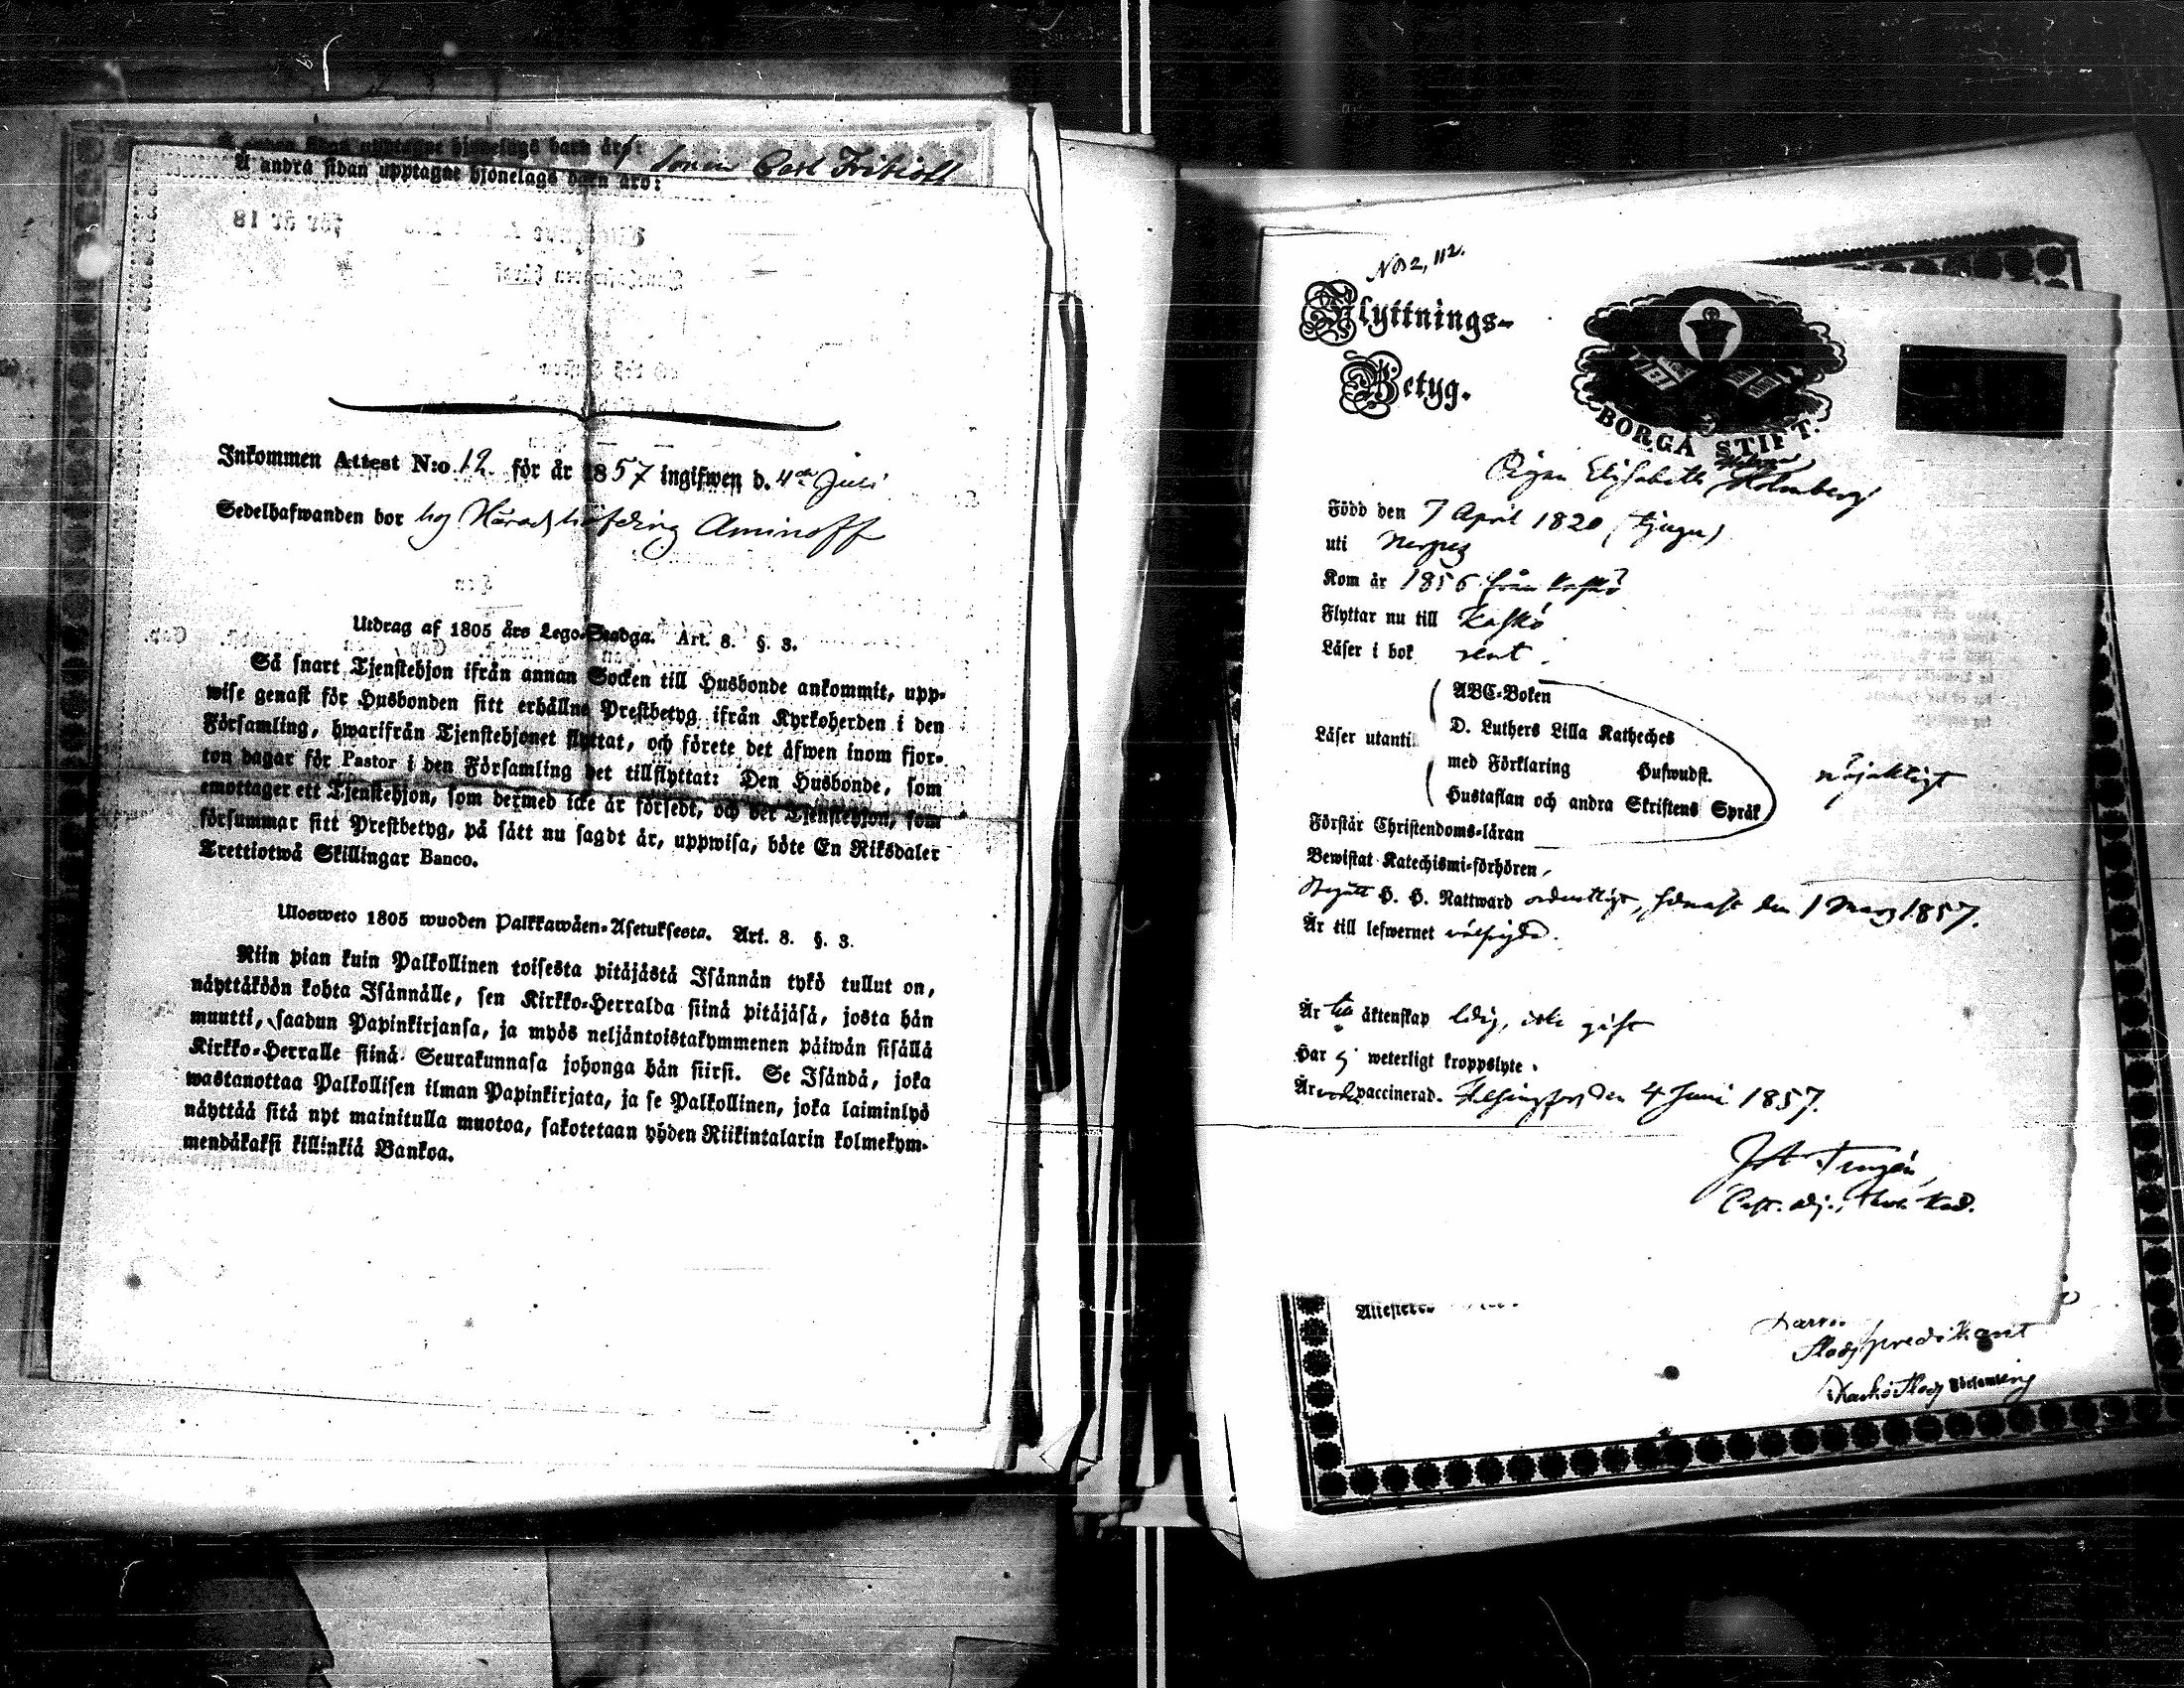 Å andra sidan upptagne hjonelags barn äro:
sonen Carl
Inkommen Attest N:o 12. för år 1857 ingifwen d. 4de Juli
Sedelhafwanden bor hos Häradshöfding Aminoff
Utdrag af 1805 års Lego-Stadga. Art. 8. §. 3.
Så snart Tjenstehjon ifrån annan Socken till Husbonde ankommit, upp-
wise genast för Husbonden sitt erhållne Prestbetyg ifrån Kyrkoherden i den
Församling, hwarifrån Tjenstehjonet flyttat, och förete det äfwen inom fjor-
ton dagar för Pastor i den Församling det tillflyttat: Den Husbonde, som
emottager ett Tjenstehjon, som dermed icke är försedt, och det Tjenstehjon, som
försummar sitt Prestbetyg, på sätt nu sagdt är, uppwisa, böte En Riksdaler
Trettiotwå Skillingar Banco.
Ulosweto 1805 wuoden Palkkawäen-Asetuksesta. Art. 8. §. 3.
Niin pian kuin Palkollinen toisesta pitäjästä Isännän tykö tullut on,
näyttäköön kohta Isännälle, sen Kirkko-Herralda siinä pitäjäsä, josta hän
muutti, saadun Papinkirjansa, ja myös neljäntoistakymmenen päiwän sisällä
Kirkko-Herralle siinä Seurakunnasa johonga hän siirsi. Se Isändä, joka
wastanottaa Palkollisen ilman Papinkirjata, ja se Palkollinen, joka laiminlyö
näyttää sitä nyt mainitulla muotoa, sakotetaan yhden Riikintalarin kolmekym-
mendäkaksi killinkiä Bankoa.
No 2, 112.
Flyttnings-
Betyg.
BORGÅ STIFT.
Pigan Elisabeth Holmberg
Född den 7 April 1820 (tjugu)
uti Nerpes
Kom år 1856 från Kaskö
Flyttar nu till Kaskö
Läser i bok rent.
Läser utantil
ABC-Boken
D. Luthers Lilla Katheches
med Förklaring Hufwudst.
Hustaflan och andra Skriftens Språk
nöjaktigt
Förstår Christendoms-läran
Bewistat Katechismi-förhören
Begått H. H. Nattward ordentligt, senast den 1 Mars 1857.
Är till lefwernet välfrejdad.
Är till äktenskap ledig, icke gift
Har ej weterligt kroppslyte.
Är vaccinerad. Helsingfors den 4 Juni 1857.
Past. adj.
Attesteras
Slottspredikant
Församling